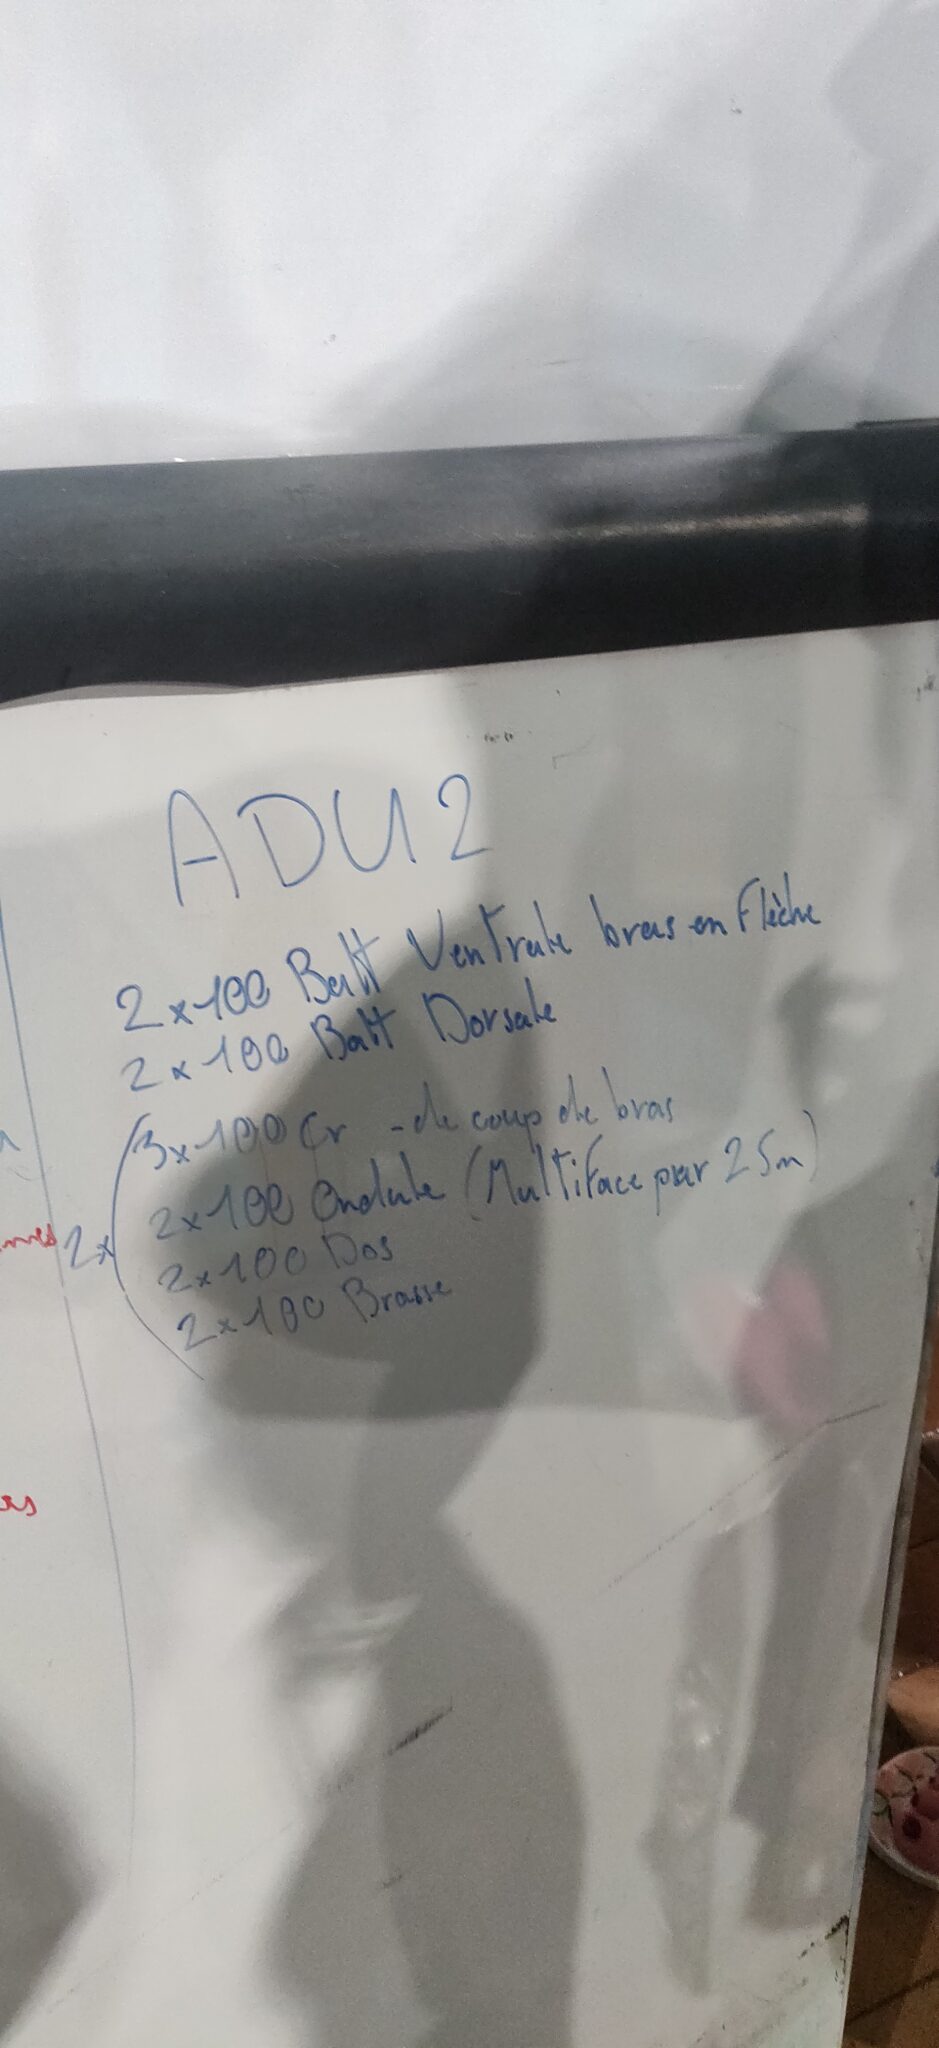 ADU2
2x100 Batt Ventrale bras en Flèche
2x100 Batt Dorsale
2x (3x100 Cr - de coup de bras
2x100 Ondule (Multiface par 25m)
2x100 Dos
2x100 Brasse